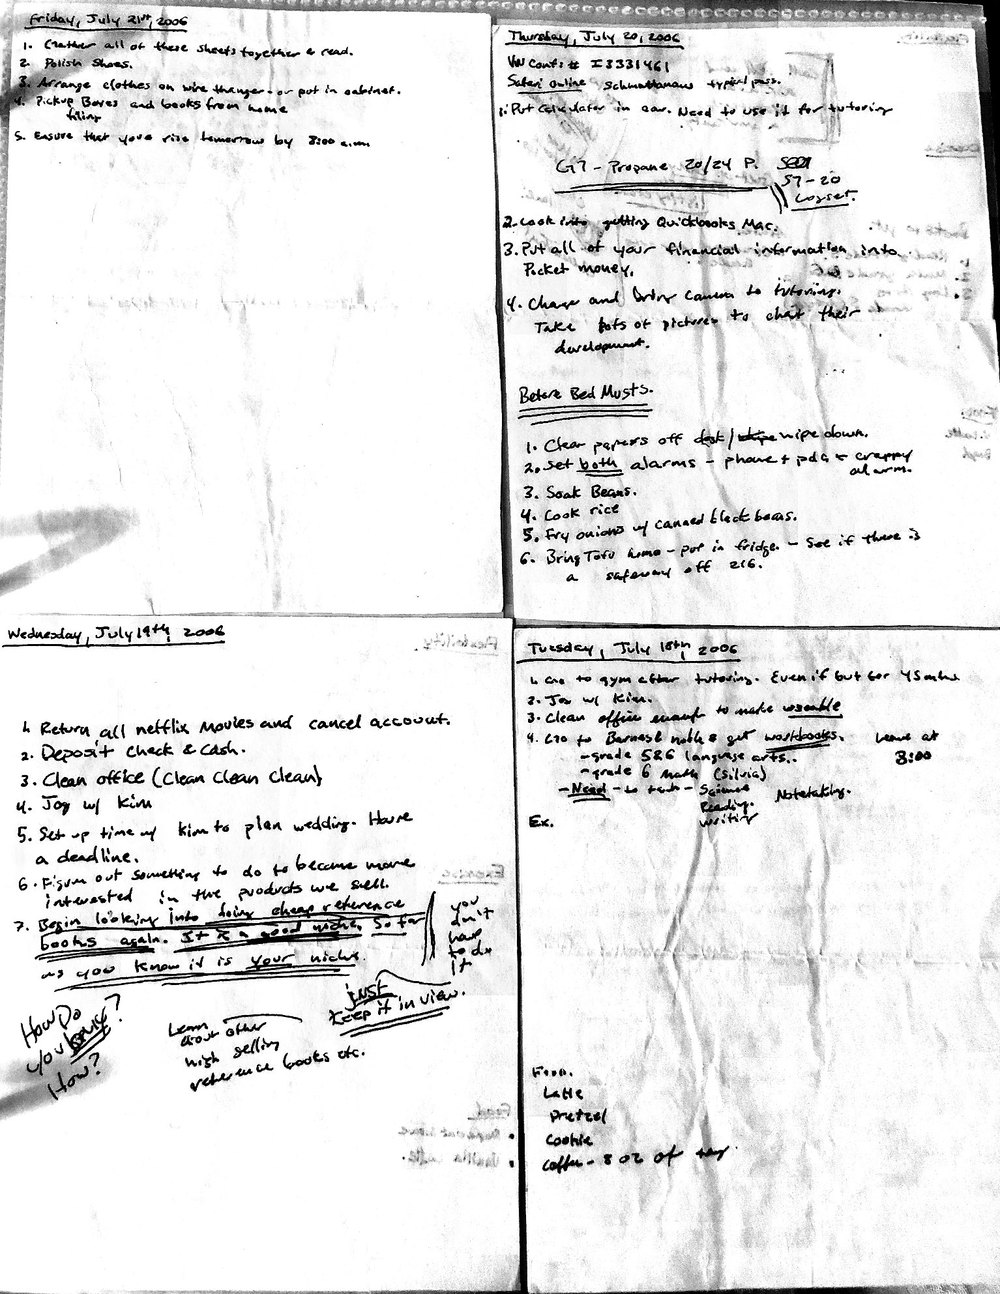 Friday, July 21st, 2006
1. Gather all of these sheets together & read.
2. Polish shoes.
3. Arrange clothes on wire - or put in cabinet.
4. Pickup Boxes and books from home
filing
5. Ensure that you rise tomorrow by 8:00 a.m.
Thursday, July 20, 2006
VW Conf: # I3331461
Safari Online typical pass.
1. Put Calculator in car. Need to use it for tutoring
G7 - Propane 20/24 P.
57-20
2. Look into getting Quickbooks Mac.
3. Put all of your financial information into
Pocket money.
4. Charge and bring camera to tutoring.
Take lots of pictures to chart their
development.
Before Bed Musts.
1. Clear papers off desk / wipe down.
2. Set both alarms - phone + pda + crappy
alarm.
3. Soak Beans.
4. Cook rice
5. Fry onions w/ canned black beans.
6. Bring Tofu home - put in fridge. - See if there is
a safeway off 216.
Wednesday, July 19th, 2006
1. Return all netflix Movies and cancel account.
2. Deposit Check & Cash.
3. Clean office (Clean Clean Clean)
4. Joy w/ Kim
5. Set up time w/ Kim to plan wedding. Have
a deadline.
6. Figure out something to do to become more
interested in the products we sell.
7. Begin looking into doing cheap reference
books again. It is a good niche. So far
as you know it is your niche.
you
don't
have
to do
it
just
keep it in view.
How Do
you ?
How?
Learn
about other
high selling
reference books etc.
Tuesday, July 18th, 2006
1. Go to gym after tutoring. Even if but for 45 mins.
2. Joy w/ Kim.
3. Clean office enough to make useable
4. Go to Barnes & noble & get workbooks. Leave at
3:00
- grade 5&6 language arts..
- grade 6 math (Silvia)
- Need - to teach - Science Notetaking.
Reading.
Writing
Ex.
Food.
Latte
Pretzel
Cookie
Coffee - 8 oz of